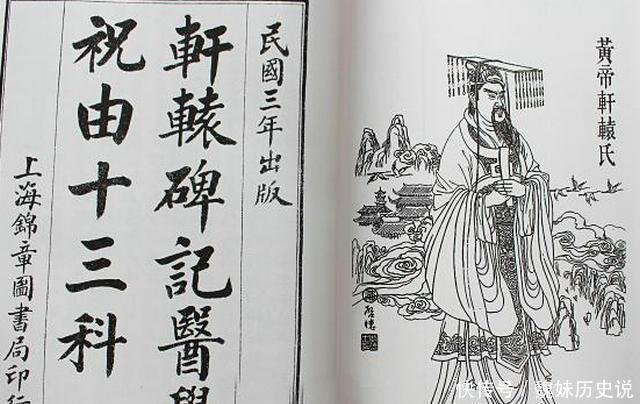 黃帝軒轅氏
民國三年出版
軒轅碑記醫學
祝由十三科
上海錦章圖書局印行
快传号／魏妹历史说